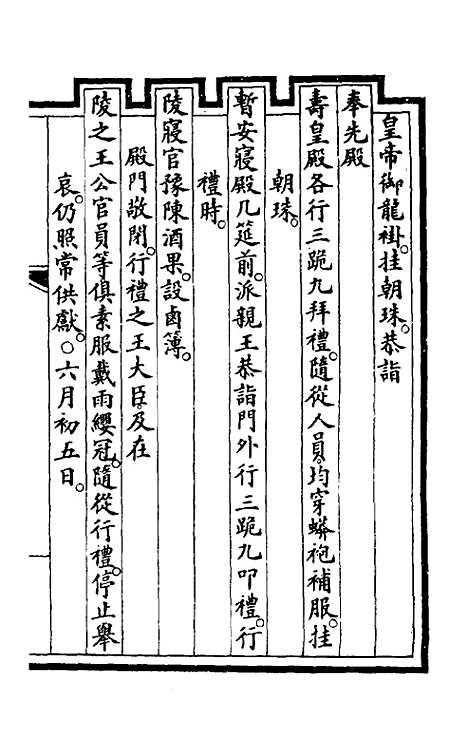 皇帝御龍褂。挂朝珠。恭詣
奉先殿
壽皇殿各行三跪九拜禮。隨從人員。均穿蟒袍補服。挂
朝珠。
暫安寢殿几筵前。派親王恭詣門外行三跪九叩禮。行
禮時。
陵寢官豫陳酒果。設鹵簿。
殿門敬閉。行禮之王大臣。及在
陵之王公官員等俱素服戴雨纓冠。隨從行禮。停止舉
哀。仍照常供獻。○六月初五日。